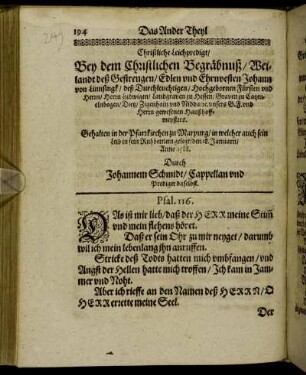 194 Das Ander Theyl
Christliche Leichpredigt/
Bey dem Christlichen Begräbnuß/ Wei-
landt deß Gestrengen/ Edlen und Ehrnvesten Johann
von Linsingk/ deß Durchleuchtigen/ Hochgebornen Fürsten und
Herrn/ Herrn Ludwigen/ Landgraven zu Hessen/ Graven zu Catzen-
elnbogen/ Dietz/ Ziegenhain und Nidda/ unsers G. F. und
Herrn gewesenen Haußhoff-
meysters.
Gehalten in der Pfarrkirchen zu Marpurg/ in welcher auch sein
leib in sein Ruhbettlein gelegt den Januarii/
Anno
Durch
Johannem Schmidt/ Cappellan und
Prediger daselbst.
Psal. 116.
DAs ist mir lieb/ daß der HERR meine Stim̃
und mein flehens höret.
Daß er sein Ohr zu mir neyget/ darumb
wil ich mein lebenlang ihn anruffen.
Stricke deß Todts hatten mich umbfangen/ und
Angst der Hellen hatte mich troffen/ Ich kam in Jam-
mer und Noht.
Aber ich rieffe an den Namen deß HERRN/ O
HERR errette meine Seel.
Der